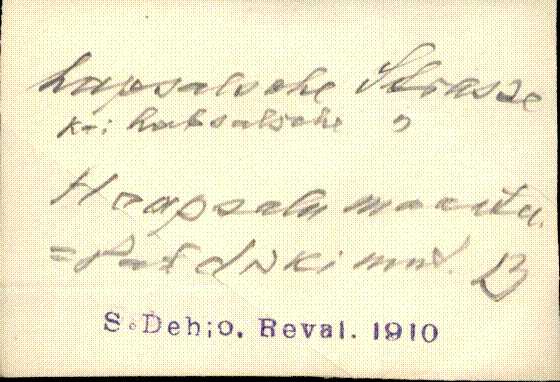 hapsalsche Strasze
k-: habsalsche "
Haapsalu maantee.
= Paldiski mnt. B
S. Dehio. Reval. 1910